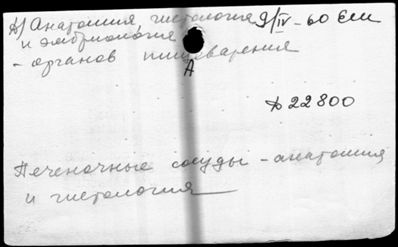 А) Анатомия, гистология 9/IV-60 Ели
и эмбриология
- органов пищеварения
А
Д 22800
Печеночные сосуды - анатомия
и гистология